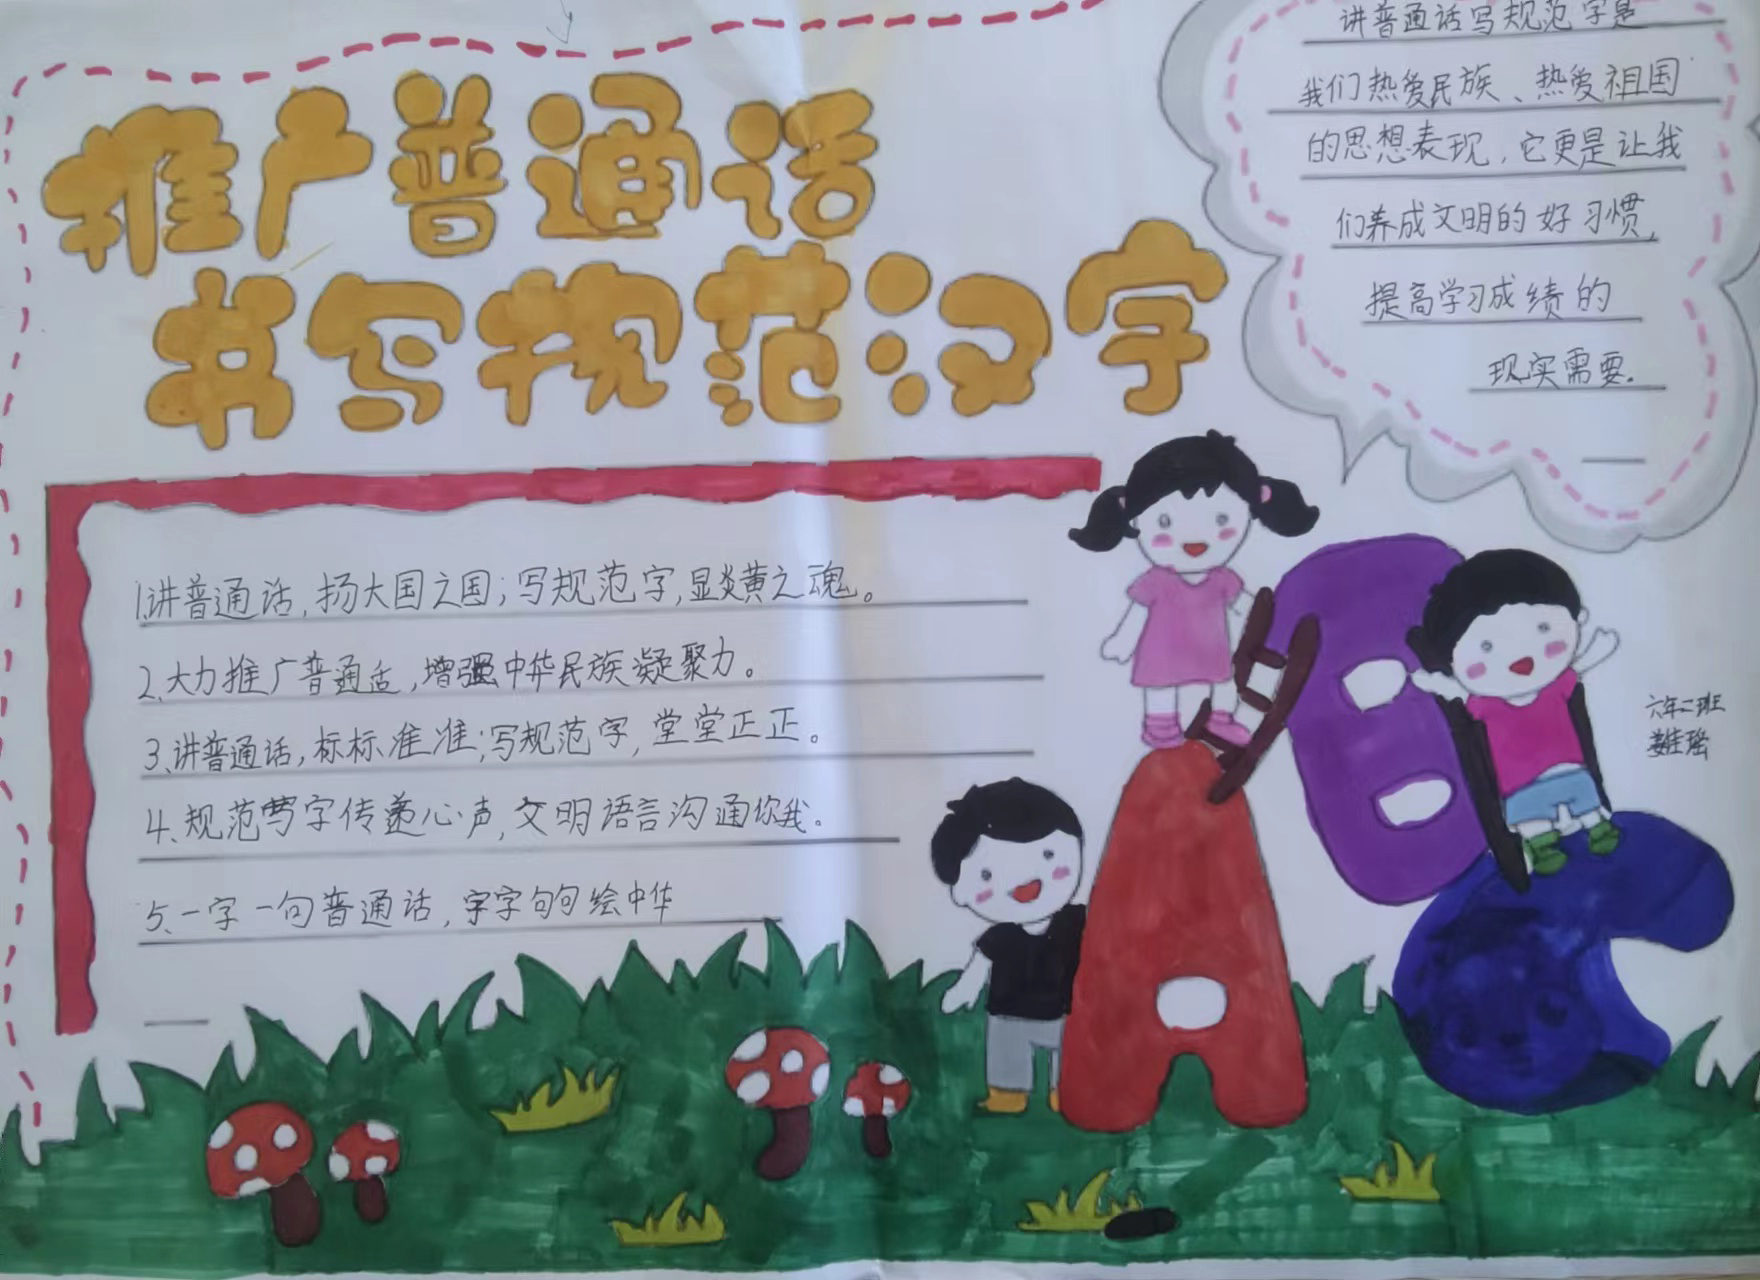 推广普通话
书写规范汉字
讲普通话写规范字是
我们热爱民族、热爱祖国
的思想表现,它更是让我
们养成文明的好习惯,
提高学习成绩的
现实需要.
1.讲普通话,扬大国之国;写规范字,显炎黄之魂。
2、大力推广普通话,增强中华民族凝聚力。
3、讲普通话,标标准准;写规范字,堂堂正正。
4、规范写字传递心声,文明语言沟通你我。
5、一字一句普通话,字字句句绘中华
六年二班
姜佳瑶
ABC